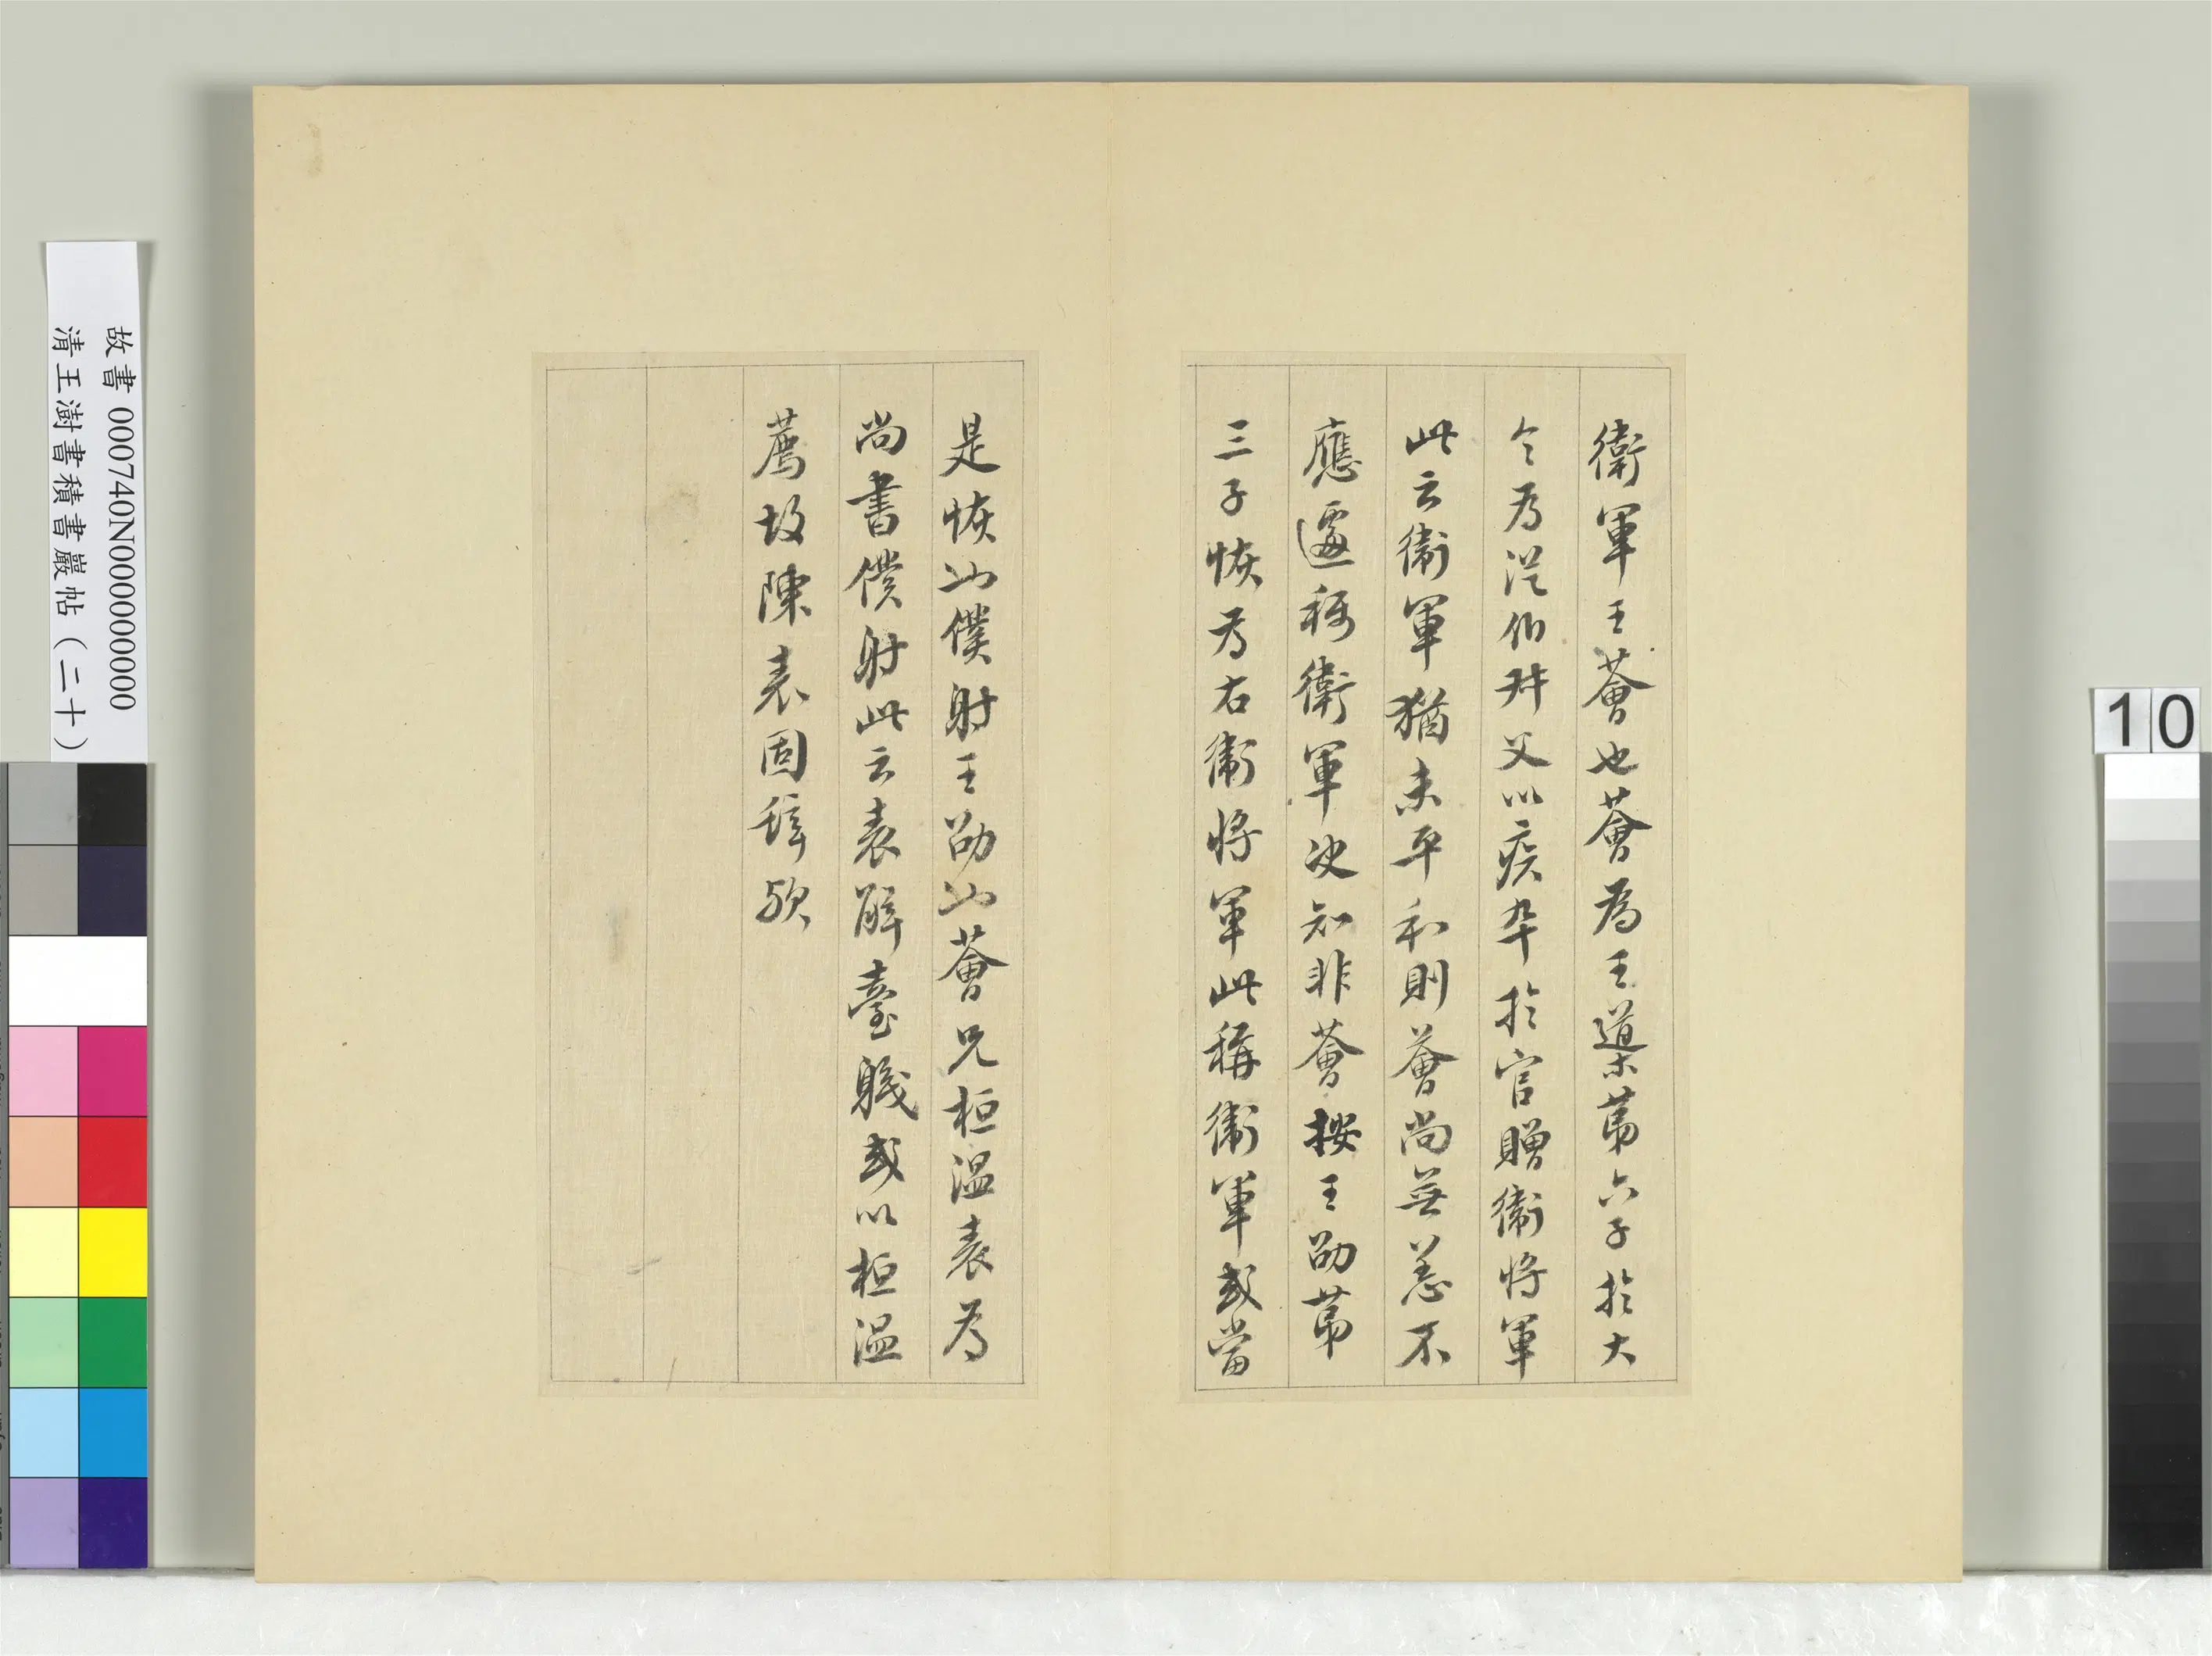 衛軍王薈也薈為王導第六子於大
令為從伯叔父以疾卒於官贈衛將軍
此云衛軍猶未平和則薈尚無恙不
應遽稱衛軍決知非薈按王劭第
三子恢為右衛將軍此稱衛軍或當
是恢也僕射王劭也薈兄桓溫表為
尚書僕射此云表解臺職或以桓溫
薦故陳表固辭歟
故書 000740N000000000
清王澍書積書巖帖(二十)
10